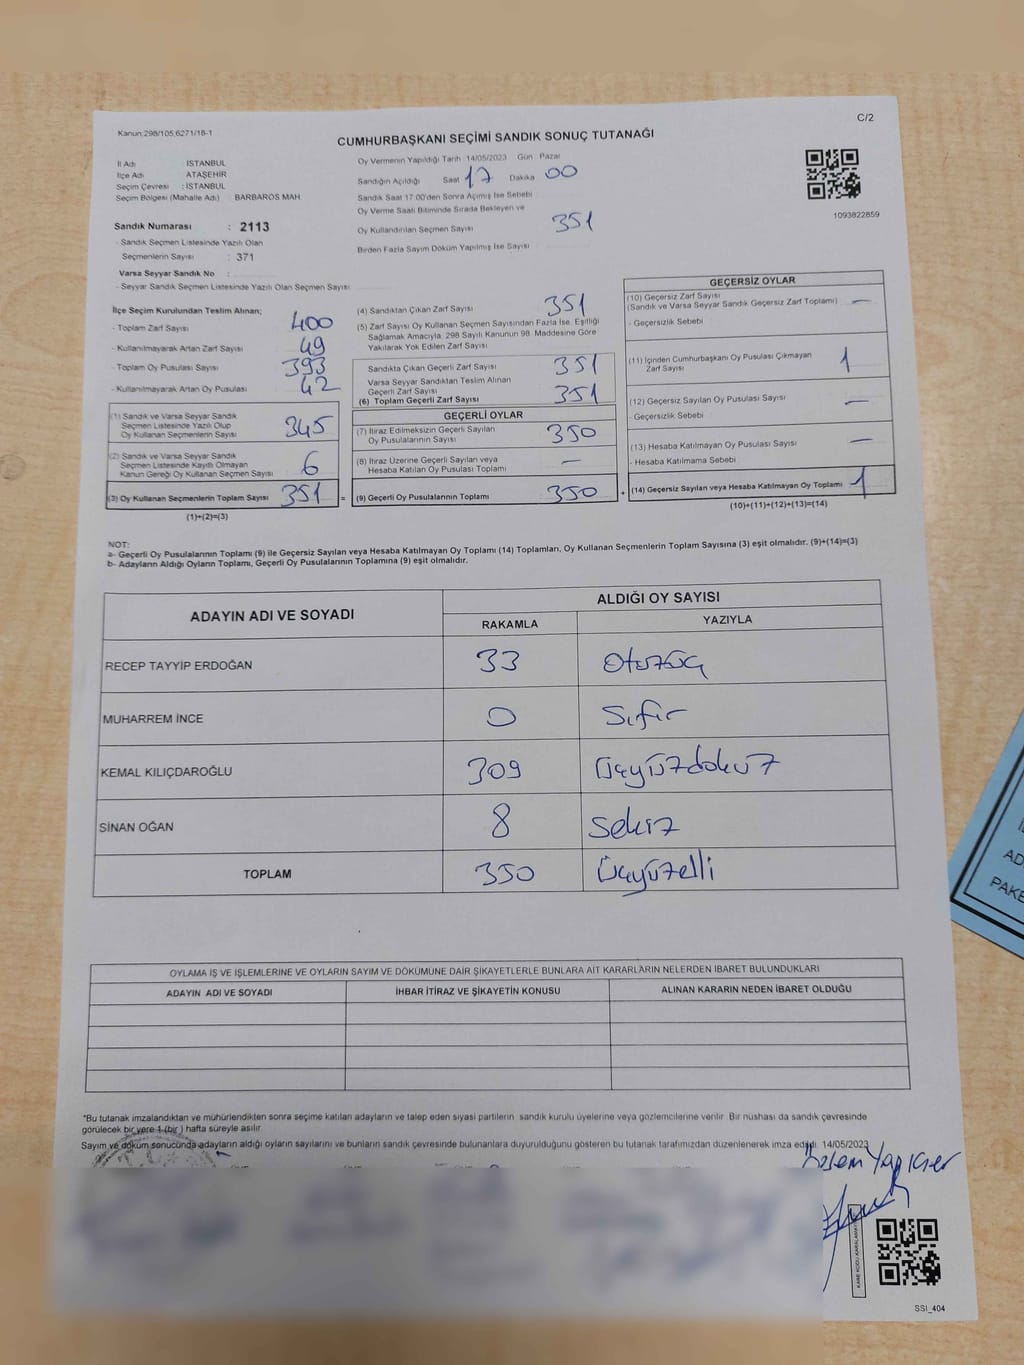 Kanun:298/105,6271/18-1
C/2
CUMHURBAŞKANI SEÇİMİ SANDIK SONUÇ TUTANAĞI
İl Adı : İSTANBUL
İlçe Adı : ATAŞEHİR
Seçim Çevresi : İSTANBUL
Seçim Bölgesi (Mahalle Adı) : BARBAROS MAH
Sandık Numarası : 2113
- Sandık Seçmen Listesinde Yazılı Olan
Seçmenlerin Sayısı : 371
Varsa Seyyar Sandık No :
- Seyyar Sandık Seçmen Listesinde Yazılı Olan Seçmen Sayısı
Oy Vermenin Yapıldığı Tarih 14/05/2023 Gün Pazar
Sandığın Açıldığı Saat 17 Dakika 00
Sandık Saat 17:00'den Sonra Açımış İse Sebebi
Oy Verme Saati Bitiminde Sırada Bekleyen ve
Oy Kullandırılan Seçmen Sayısı 351
Birden Fazla Sayım Döküm Yapılmış İse Sayısı
1093822859
İlçe Seçim Kurulundan Teslim Alınan;
- Toplam Zarf Sayısı 400
- Kullanılmayarak Artan Zarf Sayısı 49
- Toplam Oy Pusulası Sayısı 393
- Kullanılmayarak Artan Oy Pusulası 42
(1) Sandık ve Varsa Seyyar Sandık
Seçmen Listesinde Yazılı Olup
Oy Kullanan Seçmenlerin Sayısı 345
(2) Sandık ve Varsa Seyyar Sandık
Seçmen Listesinde Kayıtlı Olmayan
Kanun Gereği Oy Kullanan Seçmen Sayısı 6
(3) Oy Kullanan Seçmenlerin Toplam Sayısı 351 =
(1)+(2)=(3)
(4) Sandıktan Çıkan Zarf Sayısı 351
(5) Zarf Sayısı Oy Kullanan Seçmen Sayısından Fazla İse, Eşitliği
Sağlamak Amacıyla, 298 Sayılı Kanunun 98. Maddesine Göre
Yakılarak Yok Edilen Zarf Sayısı
Sandıkta Çıkan Geçerli Zarf Sayısı 351
Varsa Seyyar Sandıktan Teslim Alınan
Geçerli Zarf Sayısı
(6) Toplam Geçerli Zarf Sayısı 351
GEÇERLİ OYLAR
(7) İtiraz Edilmeksizin Geçerli Sayılan
Oy Pusulalarının Sayısı 350
(8) İtiraz Üzerine Geçerli Sayılan veya
Hesaba Katılan Oy Pusulası Toplamı —
(9) Geçerli Oy Pusulalarının Toplamı 350 +
GEÇERSİZ OYLAR
(10) Geçersiz Zarf Sayısı
(Sandık ve Varsa Seyyar Sandık Geçersiz Zarf Toplamı) —
- Geçersizlik Sebebi
(11) İçinden Cumhurbaşkanı Oy Pusulası Çıkmayan
Zarf Sayısı 1
(12) Geçersiz Sayılan Oy Pusulası Sayısı —
- Geçersizlik Sebebi
(13) Hesaba Katılmayan Oy Pusulası Sayısı —
- Hesaba Katılmama Sebebi
(14) Geçersiz Sayılan veya Hesaba Katılmayan Oy Toplamı 1
(10)+(11)+(12)+(13)=(14)
NOT:
a- Geçerli Oy Pusulalarının Toplamı (9) ile Geçersiz Sayılan veya Hesaba Katılmayan Oy Toplamı (14) Toplamları, Oy Kullanan Seçmenlerin Toplam Sayısına (3) eşit olmalıdır. (9)+(14)=(3)
b- Adayların Aldığı Oyların Toplamı, Geçerli Oy Pusulalarının Toplamına (9) eşit olmalıdır.
ADAYIN ADI VE SOYADI
ALDIĞI OY SAYISI
RAKAMLA YAZIYLA
RECEP TAYYİP ERDOĞAN 33 Otuzüç
MUHARREM İNCE 0 Sıfır
KEMAL KILIÇDAROĞLU 309 Üçyüzdokuz
SİNAN OĞAN 8 Sekiz
TOPLAM 350 Üçyüzelli
OYLAMA İŞ VE İŞLEMLERİNE VE OYLARIN SAYIM VE DÖKÜMÜNE DAİR ŞİKAYETLERLE BUNLARA AİT KARARLARIN NELERDEN İBARET BULUNDUKLARI
ADAYIN ADI VE SOYADI İHBAR İTİRAZ VE ŞİKAYETİN KONUSU ALINAN KARARIN NEDEN İBARET OLDUĞU
*Bu tutanak imzalandıktan ve mühürlendikten sonra seçime katılan adayların ve talep eden siyasi partilerin sandık kurulu üyelerine veya gözlemcilerine verilir. Bir nüshası da sandık çevresinde
görülecek bir yere 1 (bir ) hafta süreyle asılır.
Sayım ve döküm sonucunda adayların aldığı oyların sayılarını ve bunların sandık çevresinde bulunanlara duyurulduğunu gösteren bu tutanak tarafımızdan düzenlenerek imza edildi. 14/05/2023
SSİ_404
AD
PAKE